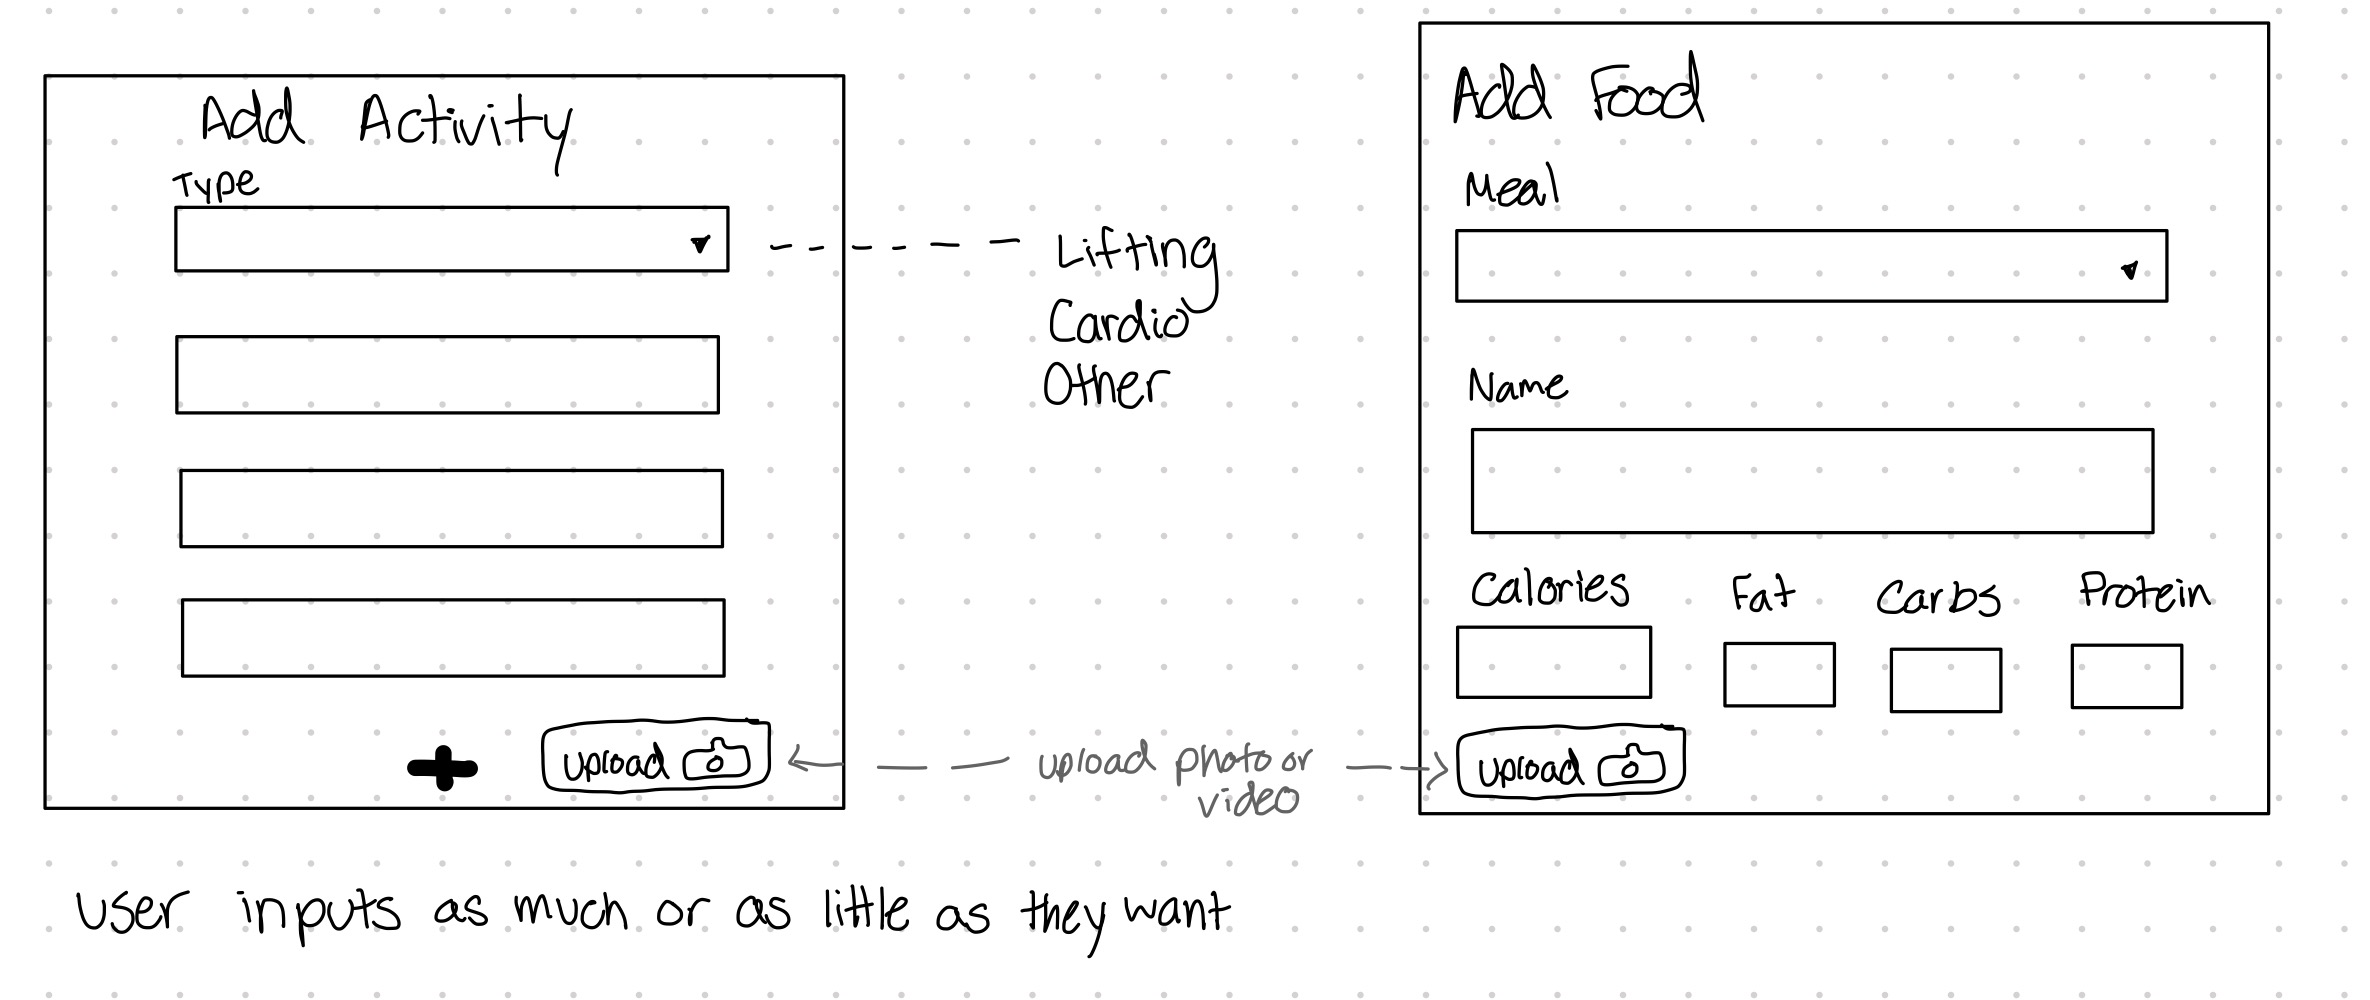 Add Activity
Type
Lifting
Cardio
Other
upload
upload photo or
video
Add Food
Meal
Name
Calories Fat Carbs Protein
upload
user inputs as much or as little as they want